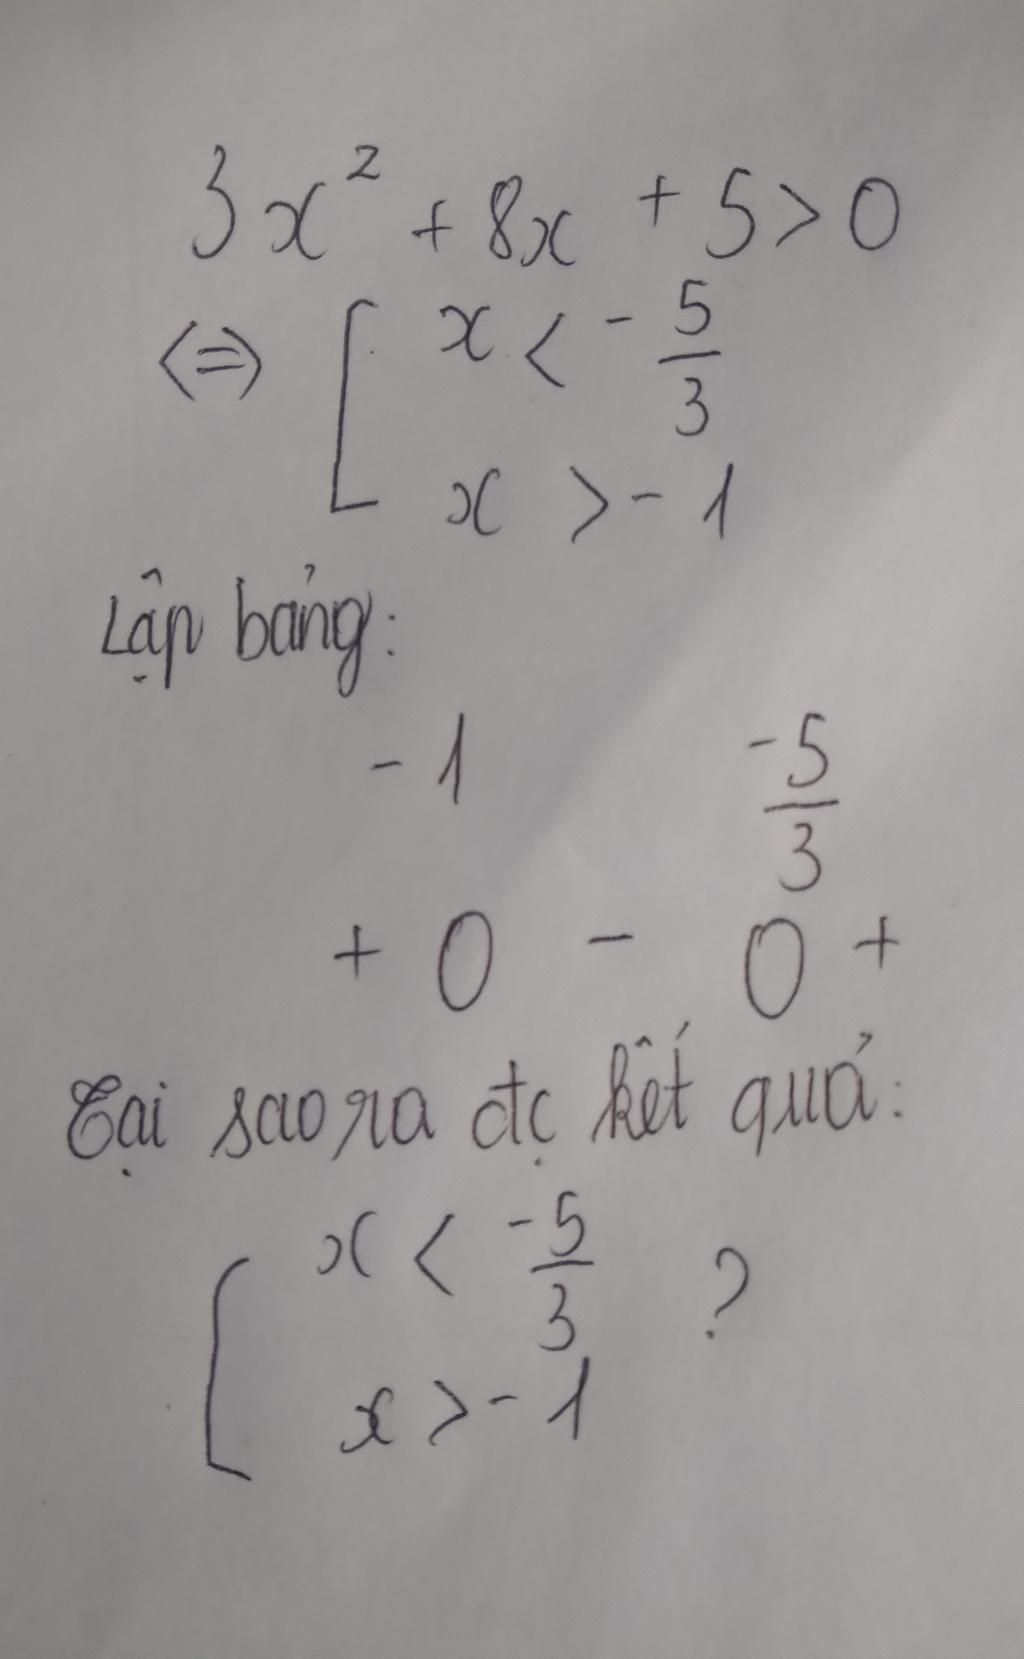 3x² + 8x + 5 > 0
<=> [ x < - 5/3
x > - 1
Lập bảng:
- 1 -5/3
+ 0 - 0 +
Tại sao ra đc kết quả:
[ x < -5/3 ?
x > - 1